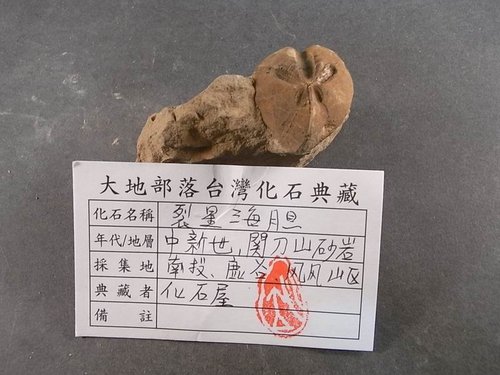 大地部落台灣化石典藏
化石名稱 裂星海胆
年代/地層 中新世,關刀山砂岩
採集地 南投、鳳山區
典藏者 化石屋
備註